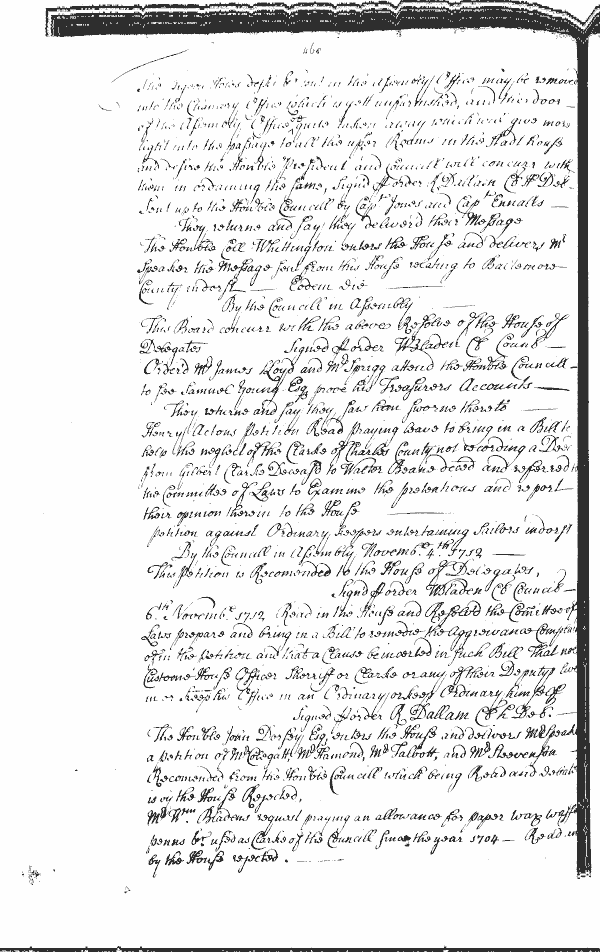 468
the Pigeon Holes Desks &c. sett in the Assembly Office may be removed
into the Chancery Office which is yett unfurnished, and the door
of the Assembly Office quite taken away which will give more
light into the passage to all the upper Rooms in the Stadt house
and desire the Honble President and Councill will concurr with
them in ordaining the same, Signd p order R Dallam Cl H Del.
Sent up to the Honble Councill by Capt. Jones and Capt Ennalls
They returne and say they deliverd their Message
The Honble Coll Whittington enters the House and delivers Mr
Speaker the Message sent from this House relating to Baltemore
County indorst Eodem Die
By the Councill in Assembly
This Board concurr with the above Resolve of the House of
Delegates Signed p order W Bladen Cl Counc
Orderd Mr James Lloyd and Mr Sprigg attend the Honble Councill
to see Samuel Young Esq prove his Treasurers Accounts
They returne and say they saw him sworne thereto
Henry Actons Petition Read praying leave to bring in a Bill to
help the neglect of the Clarke of Charles County not recording a Deed
from Gilbert Clarke Deceasd to Walter Beane decd and referred to
the Committee of Laws to Examine the pretentions and report
their opinion therein to the House
Petition against Ordinary keepers entertaining Sailors indorst
By the Councill in Assembly Novembr. 4th. 1712
This Petition is Recomended to the House of Delegates,
Signd p order W Bladen Cl Council
6th Novembr. 1712 Read in the House and Resolved the Comittee of
Laws prepare and bring in a Bill to remedie the Aggreivance Complain
of in the petition and that a Clause be incerted in such Bill That no
Custome House Officer Sherriff or Clarke or any of their Deputys live
in or keep his Office in an Ordinary or keep Ordinary himself
Signed p order R Dallam Cl h Del.
The Honble John Dorsey Esq enters the House and delivers Mr Speaker
a petition of Mr Colegatt Mr Hamond, Mr Talbott, and Mr Stevenson
Recomended from the Honble Councill which being Read and debated
is by the House Rejected,
Mr Wm. Bladens request praying an allowance for paper wax wafers
penns &c. used as Clarke of the Councill since the year 1704 Read and
by the House rejected.